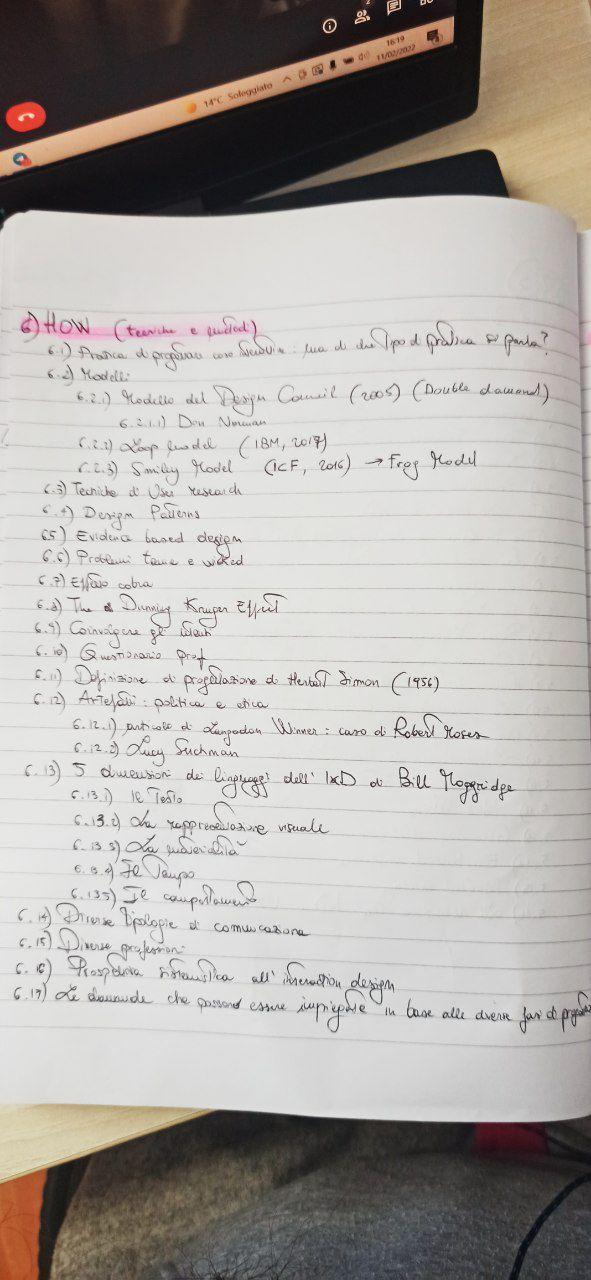 16:19
11/02/2022
14°C Soleggiato
6) HOW (tecniche e metodi)
6.1) Pratica di progettare cose interattive: ma di che tipo di pratica si parla?
6.2) Modelli
6.2.1) Modello del Design Council (2005) (Double diamond)
6.2.1.1) Don Norman
6.2.2) Loop model (IBM, 2017)
6.2.3) Smiley Model (ICF, 2016) → Frog Model
6.3) Tecniche di User research
6.4) Design Patterns
6.5) Evidence based design
6.6) Problemi tame e wicked
6.7) Effetto cobra
6.8) The Dunning Kruger Effect
6.9) Coinvolgere gli utenti
6.10) Questionario prof
6.11) Definizione di progettazione di Herbert Simon (1956)
6.12) Artefatti: politica e etica
6.12.1) articolo di Langadon Winner: caso di Robert Moses
6.12.2) Lucy Suchman
6.13) 5 dimensioni dei linguaggi dell' IxD di Bill Moggridge
6.13.1) Il Testo
6.13.2) La rappresentazione visuale
6.13.3) La materialità
6.13.4) Il Tempo
6.13.5) Il comportamento
6.14) Diverse tipologie di comunicazione
6.15) Diverse professioni
6.16) Prospettiva sistemistica all' interaction design
6.17) Le domande che possono essere impiegate in base alle diverse fasi di